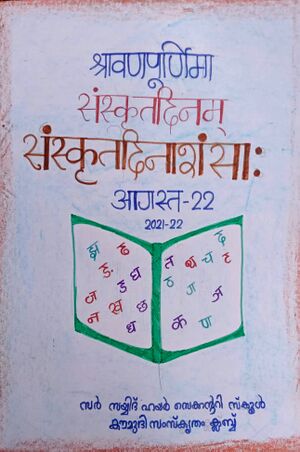 श्रावणपूर्णिमा
संस्कृतदिनम्
संस्कृतदिनाशंसाः
आगस्त-22
2021-22
झ ढ
ङ ड घ
ज
न ख छ
ध
त श च द ट
ठ ग
ज
क ण
സർ സയ്യിദ് ഹയർ സെക്കന്ററി സ്കൂൾ
കൗമുദി സംസ്കൃതം ക്ലബ്ബ്